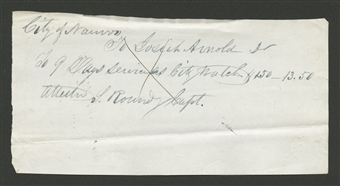 City of Nauvoo
To Joseph Arnold Dr
To 9 Days services City Watch @ 1.50 – 13.50
Attest S. Roundy Capt.